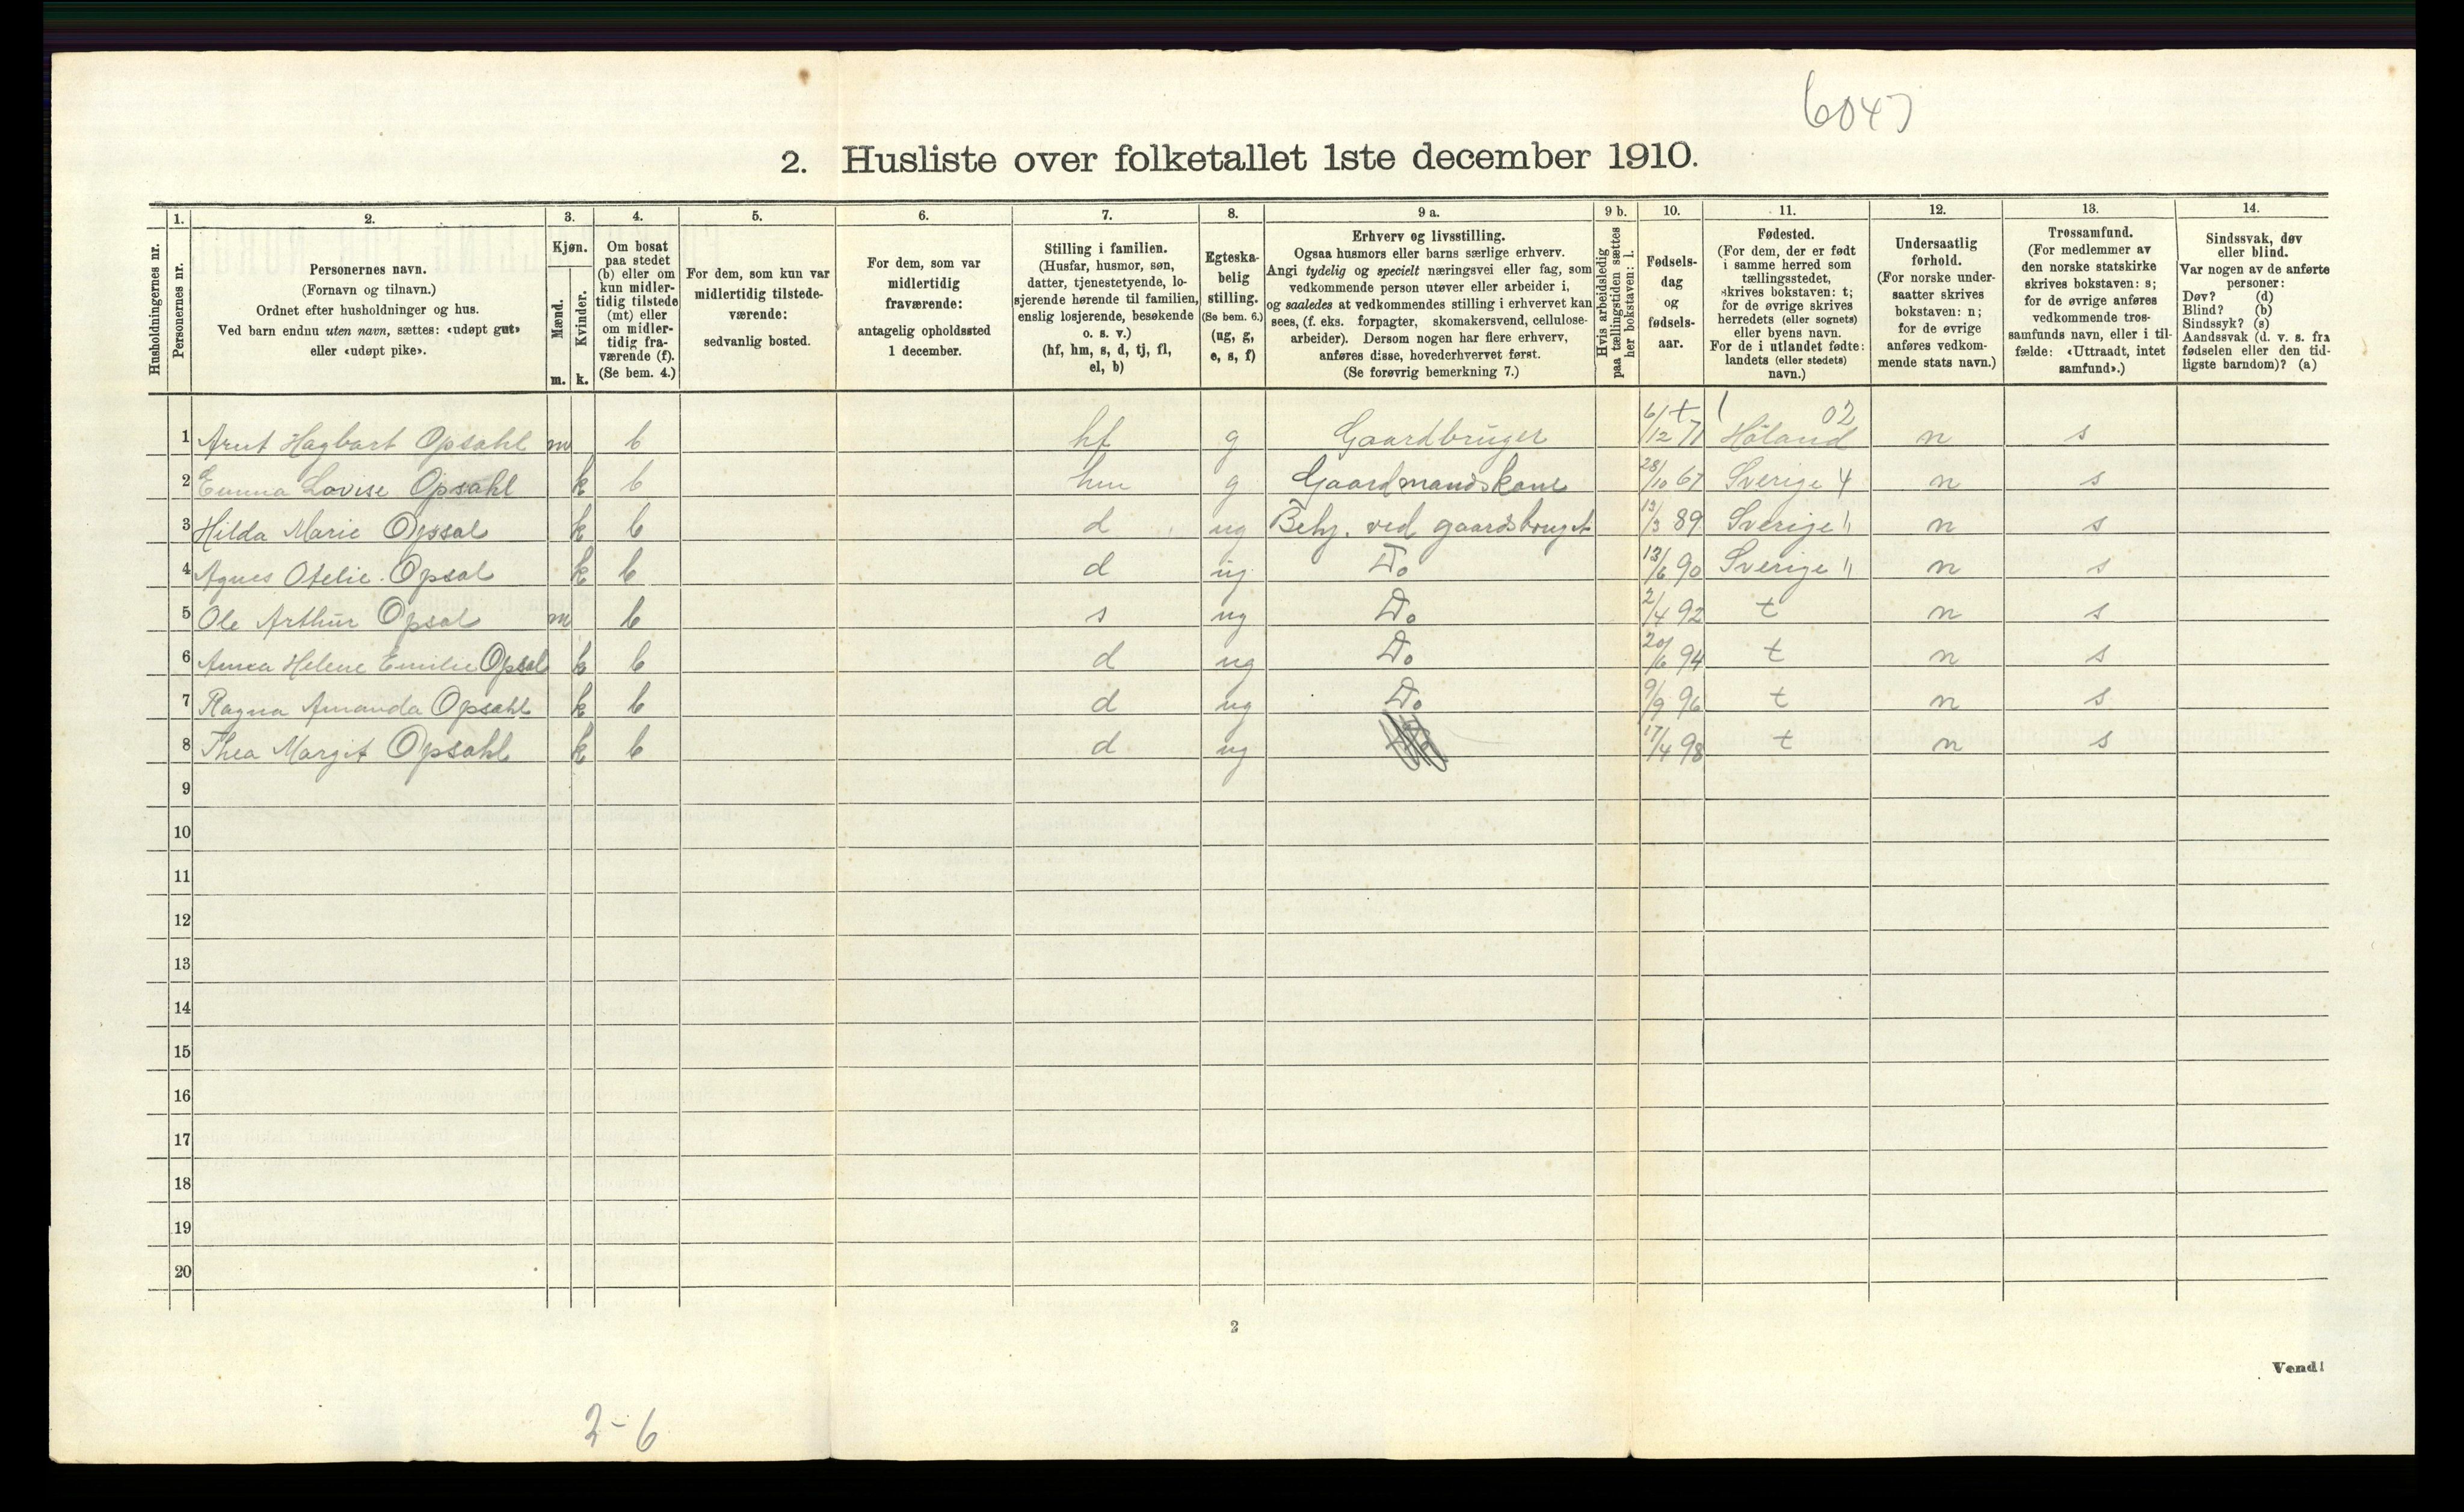 6047
2. Husliste over folketallet 1ste december 1910.
Husholdningernes nr.
1.
Personernes nr.
2.
Personernes navn.
(Fornavn og tilnavn.)
Ordnet efter husholdninger og hus.
Ved barn endnu uten navn, sættes: «udøpt gut»
eller «udøpt pike».
3.
Kjøn.
Mænd.
Kvinder.
m. k.
4.
Om bosat
paa stedet
(b) eller om
kun midler-
tidig tilstede
(mt) eller
om midler-
tidig fra-
værende (f).
(Se bem. 4.)
5.
For dem, som kun var
midlertidig tilstede-
værende:
sedvanlig bosted.
6.
For dem, som var
midlertidig
fraværende:
antagelig opholdssted
1 december.
7.
Stilling i familien.
(Husfar, husmor, søn,
datter, tjenestetyende, lo-
sjerende hørende til familien,
enslig losjerende, besøkende
o. s. v.)
(hf, hm, s, d, tj, fl,
el, b)
8.
Egteska-
belig
stilling.
(Se bem. 6.)
(ug, g,
e, s, f)
9 a.
Erhverv og livsstilling.
Ogsaa husmors eller barns særlige erhverv.
Angi tydelig og specielt næringsvei eller fag, som
vedkommende person utøver eller arbeider i,
og saaledes at vedkommendes stilling i erhvervet kan
sees, (f. eks. forpagter, skomakersvend, cellulose-
arbeider). Dersom nogen har flere erhverv,
anføres disse, hovederhvervet først.
(Se forøvrig bemerkning 7.)
9 b.
Hvis arbeidsledig
paa tællingstiden sættes
her bokstaven: l.
10.
Fødsels-
dag
og
fødsels-
aar.
11.
Fødested.
(For dem, der er født
i samme herred som
tællingsstedet,
skrives bokstaven: t;
for de øvrige skrives
herredets (eller sognets)
eller byens navn.
For de i utlandet fødte:
landets (eller stedets)
navn.)
12.
Undersaatlig
forhold.
(For norske under-
saatter skrives
bokstaven: n;
for de øvrige
anføres vedkom-
mende stats navn.)
13.
Trossamfund.
(For medlemmer av
den norske statskirke
skrives bokstaven: s;
for de øvrige anføres
vedkommende tros-
samfunds navn, eller i til-
fælde: «Uttraadt, intet
samfund».)
14.
Sindssvak, døv
eller blind.
Var nogen av de anførte
personer:
Døv? (d)
Blind? (b)
Sindssyk? (s)
Aandssvak (d. v. s. fra
fødselen eller den tid-
ligste barndom)? (a)
1 Arnt Hagbart Opsahl m b hf g Gaardbruger 6/12 71 Höland 02 n s
2 Emma Lovise Opsahl k b hm g Gaardmandskone 28/10 67 Sverige 4 n s
3 Hilda Marie Opsal k b d ug Behj. ved gaardsbruget 13/3 89 Sverige " n s
4 Agnes Otelie Opsal k b d ug Do 13/6 90 Sverige " n s
5 Ole Arthur Opsal m b s ug Do 2/4 92 t n s
6 Anna Helene Emilie Opsal k b d ug Do 20/6 94 t n s
7 Ragna Amanda Opsahl k b d ug Do 9/9 96 t n s
8 Thea Margit Opsahl k b d ug 17/4 98 t n s
9
10
11
12
13
14
15
16
17
18
19
20
2
Vend!
2-6